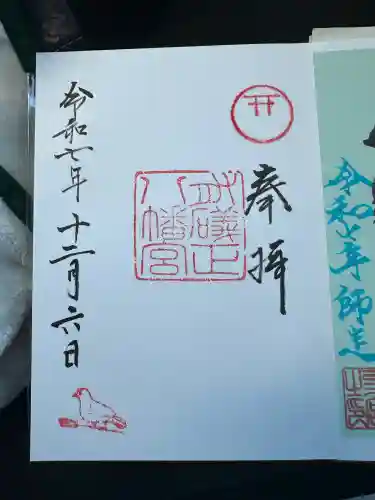 奉拝
八幡宮
令和七年十二月六日
令和七年師走